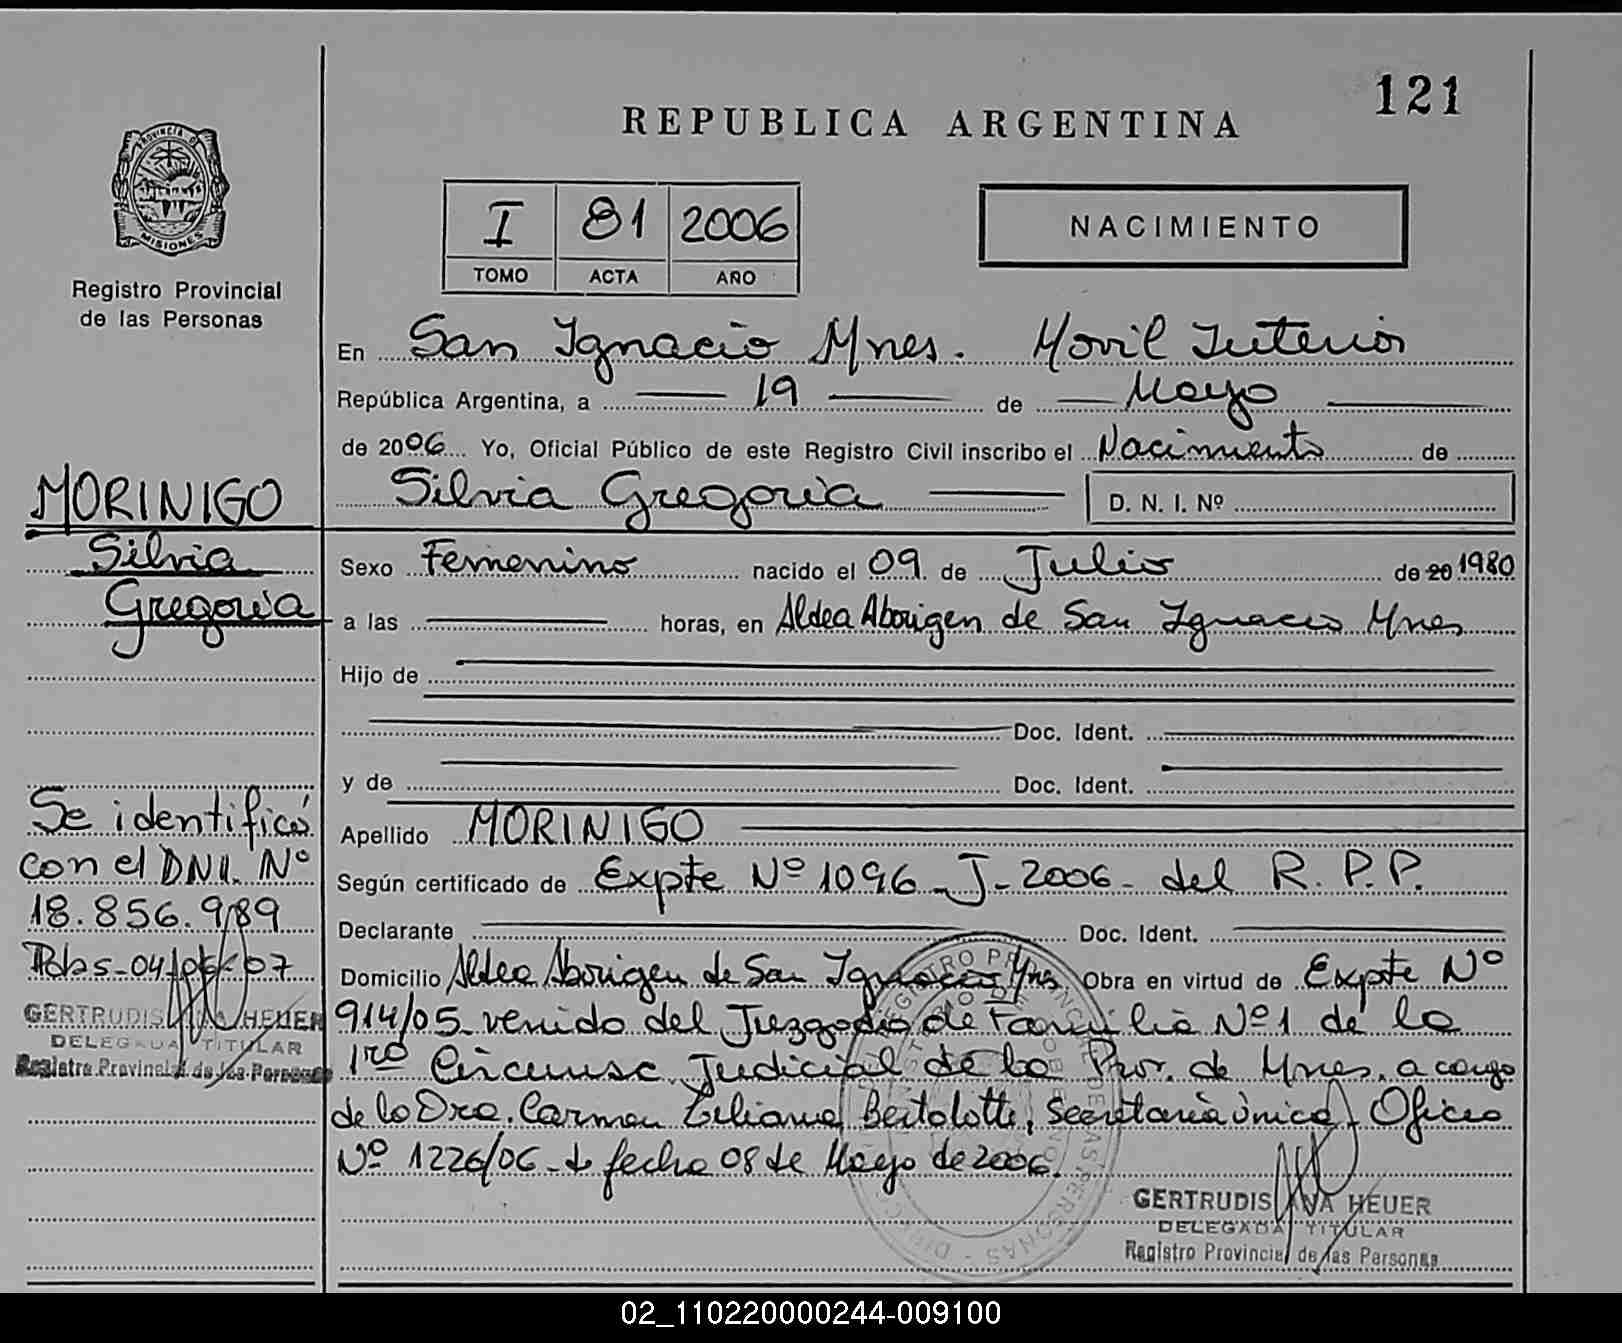 121
REPUBLICA ARGENTINA
PROVINCIA DE
MISIONES
Registro Provincial
de las Personas
I 81 2006
TOMO ACTA AÑO
NACIMIENTO
En San Ignacio Mnes. Movil Interior
República Argentina, a 19 de Mayo
de 2006 Yo, Oficial Público de este Registro Civil inscribo el Nacimiento de
Silvia Gregoria D. N. I. Nº
MORINIGO
Silvia
Gregoria
Sexo Femenino nacido el 09 de Julio de 20 1980
a las horas, en Aldea Aborigen de San Ignacio Mnes
Hijo de
Doc. Ident.
y de Doc. Ident.
Apellido MORINIGO
Según certificado de Expte Nº 1096-J-2006- del R. P. P.
Declarante Doc. Ident.
Domicilio Aldea Aborigen de San Ignacio Mnes Obra en virtud de Expte Nº
914/05 venido del Juzgado de Familia Nº1 de la
1ra Circunsc. Judicial de la Prov. de Mnes. a cargo
de la Dra. Carmen Liliana Bertolotti, Secretaria única, Oficio
Nº 1226/06 - de fecha 08 de Mayo de 2006.
GERTRUDIS HEUER
DELEGADA TITULAR
Registro Provincial de las Personas
Se identificó
con el DNI. Nº
18.856.989
Pdas-04/06/07
GERTRUDIS HEUER
DELEGADA TITULAR
Registro Provincial de las Personas
02_110220000244-009100